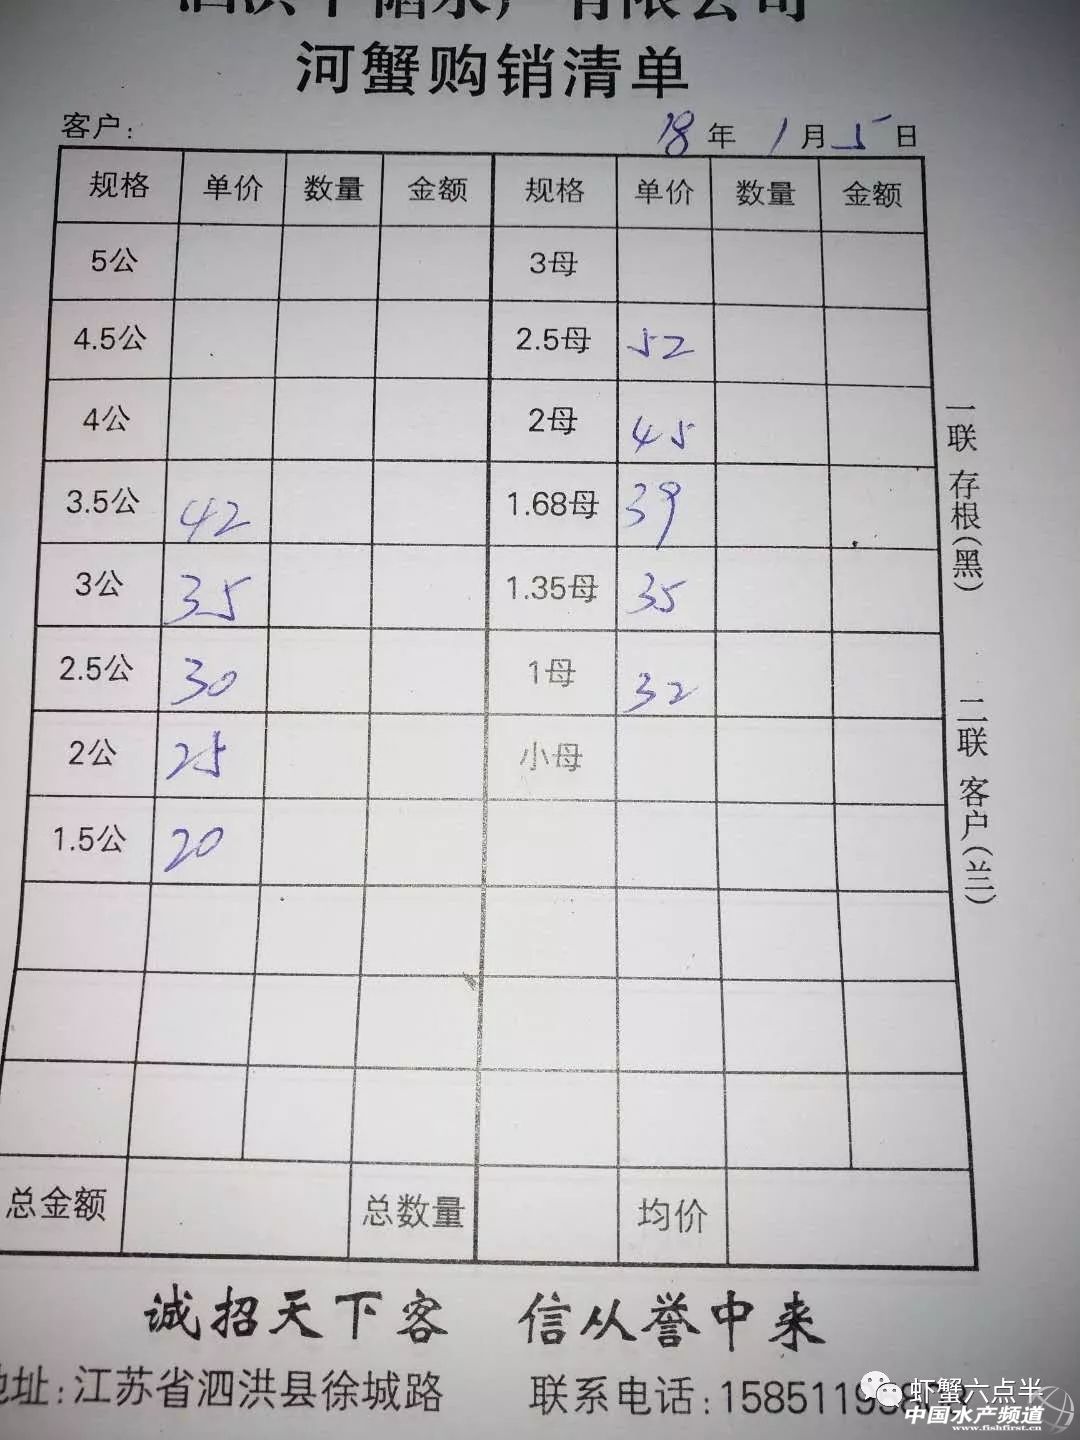 有限公司
河蟹购销清单
客户: 18年 1月5日
规格 单价 数量 金额 规格 单价 数量 金额
5公 3母
4.5公 2.5母 52
4公 2母 45
3.5公 42 1.68母 39
3公 35 1.35母 35
2.5公 30 1母 32
2公 25 小母
1.5公 20
总金额 总数量 均价
一联 存根(黑) 二联 客户(兰)
诚招天下客 信从誉中来
地址:江苏省泗洪县徐城路 联系电话:158511
虾蟹六点半
中国水产频道
www.fishfirst.cn